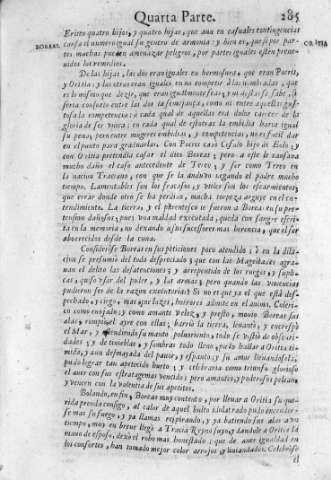 Quarta Parte. 285
Eristo quatro hijos, y quatro hijas, que aun en casuales contingencias
BOREAS. causa el numero igual su genero de armonia; y bien es, que si por par-
tes muchas pueden amenazar peligros, por partes iguales estèn preve-
nidos los remedios.
De las hijas, las dos eran iguales en hermosura, que eran Pocris,
y Oritia; y las otras eran iguales en no competir à las más bellas, que
es lo mismo que dezir, que eran igualmente feas; y
forta consorte entre las dos la semejança, como ni entre aquellas gus-
tosa la competencia: à cada qual de aquellas era dulce carcer de la
gloria de ser vnica; en cada qual de estotras la embidia haria igual
la pena, pero entre mugeres embidias, y competencias, no es facil dar
en el punto para graduarlas. Con Pocris casò Cefalo hijo de Eolo, y
con Oritia pretendia casar el ayre Boreas; pero a este le causava
mucho daño el caso antecedente de Tereo, y ser como Tereo en
la nacion Traciano, con que se la anduvo negando el padre mucho
tiempo. Lamentables son los fracasos, y vtiles son los escarmientos,
que errar donde otro se ha perdido, mucha torpeza arguye en el en-
tendimiento. La tierra, y el parentesco se fueron à Boreas su pre-
tension dañosos; pues vna maldad executada, queda con sangre escri-
ta en la memoria, no dexando à sus sucesores mas herencia, que el ser
aborrecidos desde la cuna.
Considerose Boreas en sus peticiones poco atendido; ò en la dila-
cion se presumiò del todo despreciado; que con las Magestades agra-
van el delito las desatenciones; y arrepentido de los ruegos, y supli-
cas, quiso vsar del poder, y las armas; pero quando las violencias
pudieron ser de la razon executorias? Si no es que ya el que està des-
preciado, y ciego, mas que luzes, horrores admite en el animo. Coleri-
co como enojado; y como amante veloz, y presto, moviò Boreas sus
alas, rompiò el ayre con ellas; barriò la tierra, levantò, y encrespò
el Mar, y tendiendo su manto polvoriento, todo se vistiò de obscuri-
dades; y de tinieblas, y sombras todo lleno, pudo hallar a Oritia ti-
mida, y aun desmayada del pavor, y espanto; y su amor llenandosele,
pudo lograr tan apetecido hurto; y celebrava como triunfo glorioso
el aver con sus estratagemas vencido; pero amantes, y poderosos pelean,
y vencen con la violencia de sus apetitos.
Bolando, en fin, Boreas muy contento, por llevar a Oritia su que-
rida prenda consigo, al calor de aquel bulto idolatrado pudo encender-
se mas su fuego, y ya llamas respirando, y ya batiendo sus alas a vn
tiempo, muy en breve llegò a Tracia Reyno suyo; dandole a Oritia la
mano de esposo, dexò el robo mas honestado; que de aver igualdad en
los consortes, han tomado mejor color arrojos, y liviandades. Celebrose
el